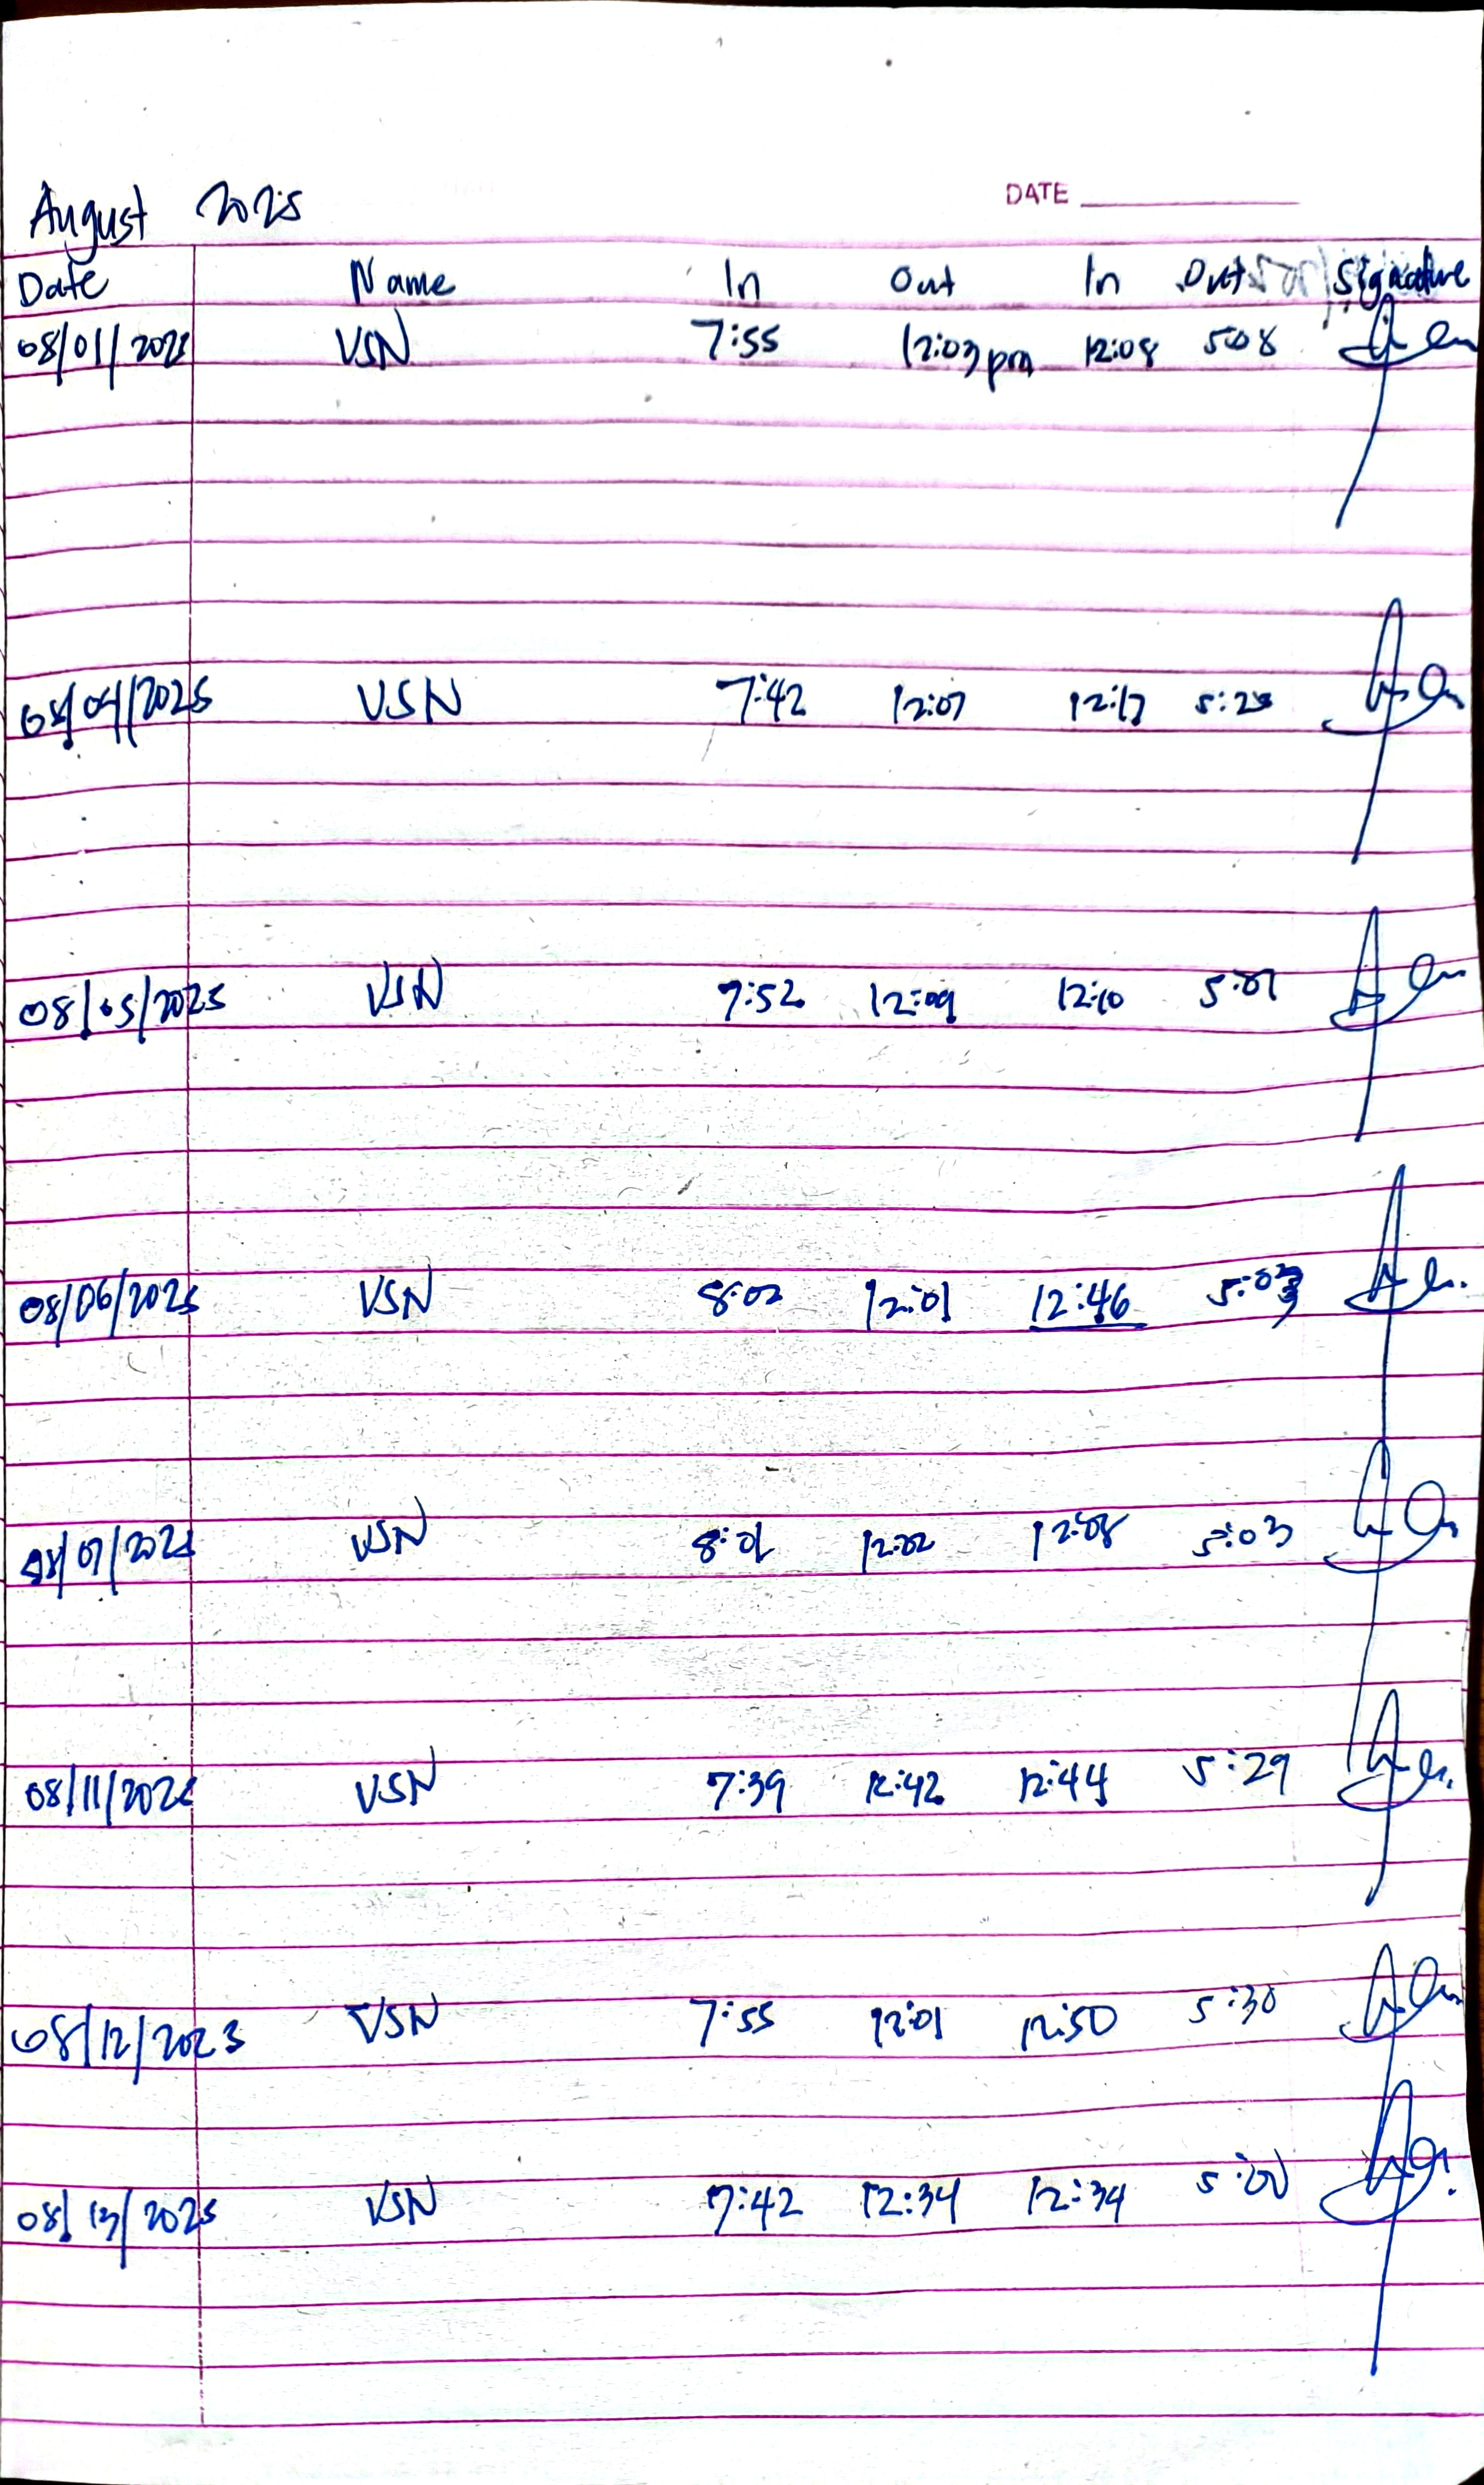 DATE
August 2025
Date Name In Out In Out Signature
08/01/2025 VSN 7:55 12:03pm 12:08 508
08/04/2025 VSN 7:42 12:07 12:17
08/05/2025 VSN 7:52 12:09 12:10 5:01
08/06/2025 VSN 8:02 12:01 12:46
VSN 8:01 12:02 12:08 5:03
08/11/2025 VSN 7:39 12:42 12:44 5:29
08/12/2025 VSN 7:55 12:01 12:50 5:30
08/13/2025 VSN 7:42 12:34 12:34 5:00